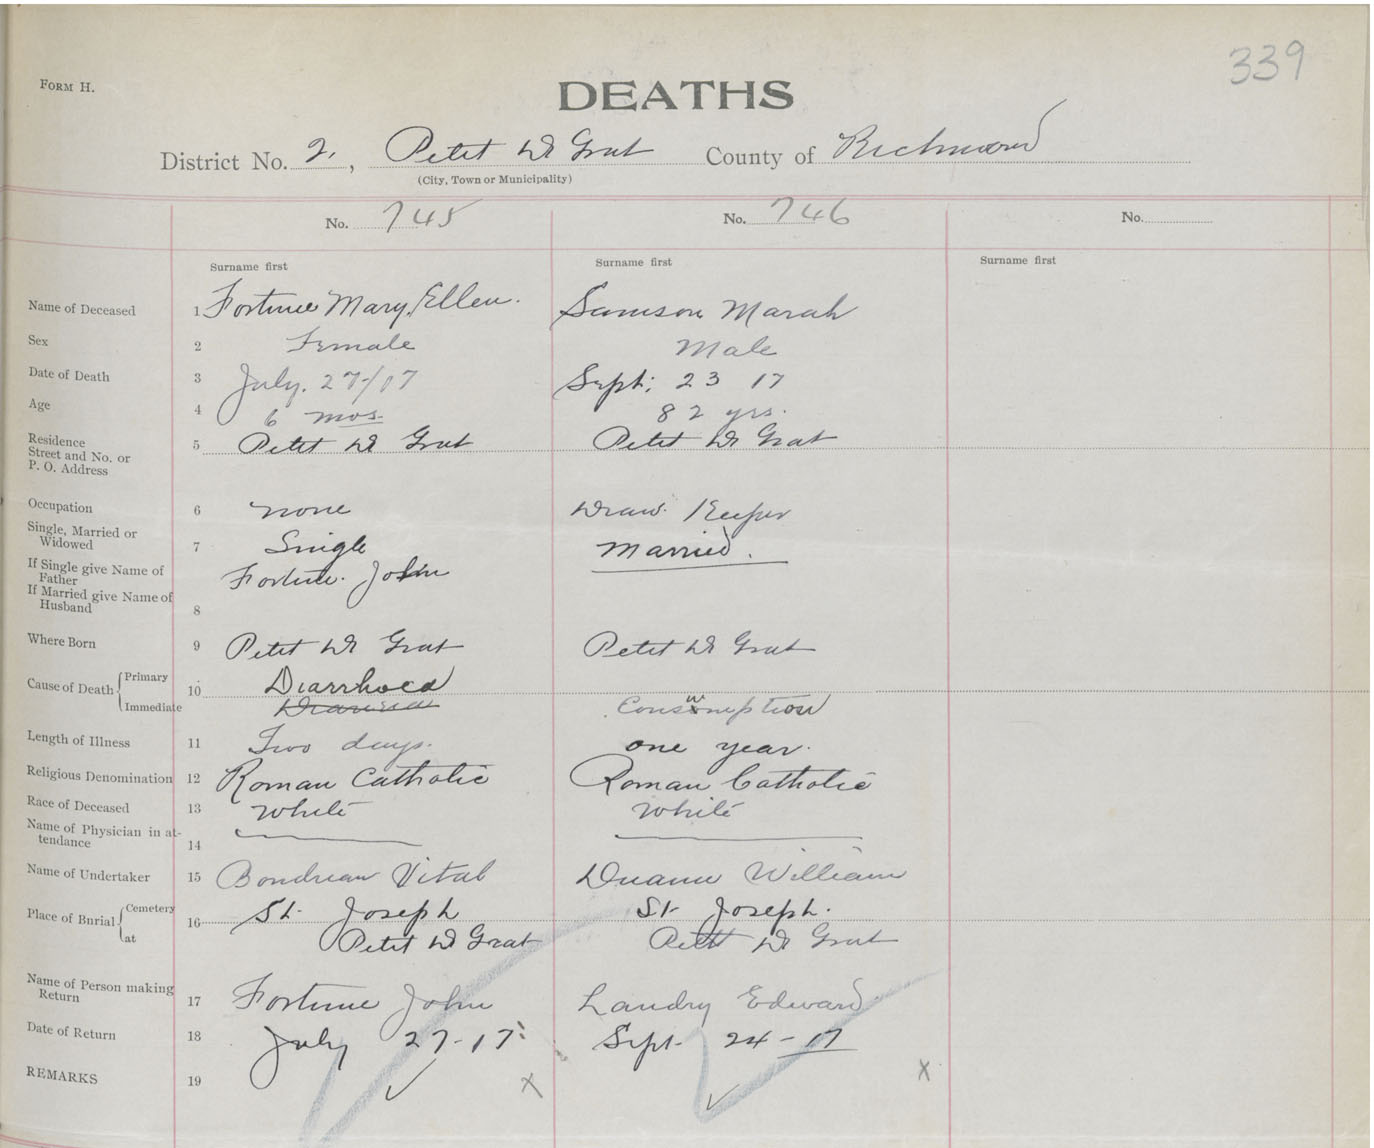 339
FORM H.
DEATHS
District No. 2, Petit De Grat County of Richmond
(City, Town or Municipality)
No. 745 No. 746 No.
Surname first Surname first Surname first
Name of Deceased 1 Fortune Mary Ellen. Samson Marah
Sex 2 Female Male
Date of Death 3 July. 27/17 Sept; 23 17
Age 4 6 mos. 82 yrs.
Residence Street and No. or P. O. Address 5 Petit De Grat Petit De Grat
Occupation 6 none Draw Keeper
Single, Married or Widowed 7 Single Married.
If Single give Name of Father Fortune. John
If Married give Name of Husband 8
Where Born 9 Petit De Grat Petit De Grat
Cause of Death Primary 10 Diarrhoea
Immediate Consumption
Length of Illness 11 Two days. one year.
Religious Denomination 12 Roman Catholic Roman Catholic
Race of Deceased 13 White White
Name of Physician in attendance 14
Name of Undertaker 15 Boudreau Vital William
Place of Burial Cemetery 16 St. Joseph St. Joseph.
at Petit De Grat Petit De Grat
Name of Person making Return 17 Fortune John Landry Edward
Date of Return 18 July 27-17 Sept. 24-17
REMARKS 19 x x